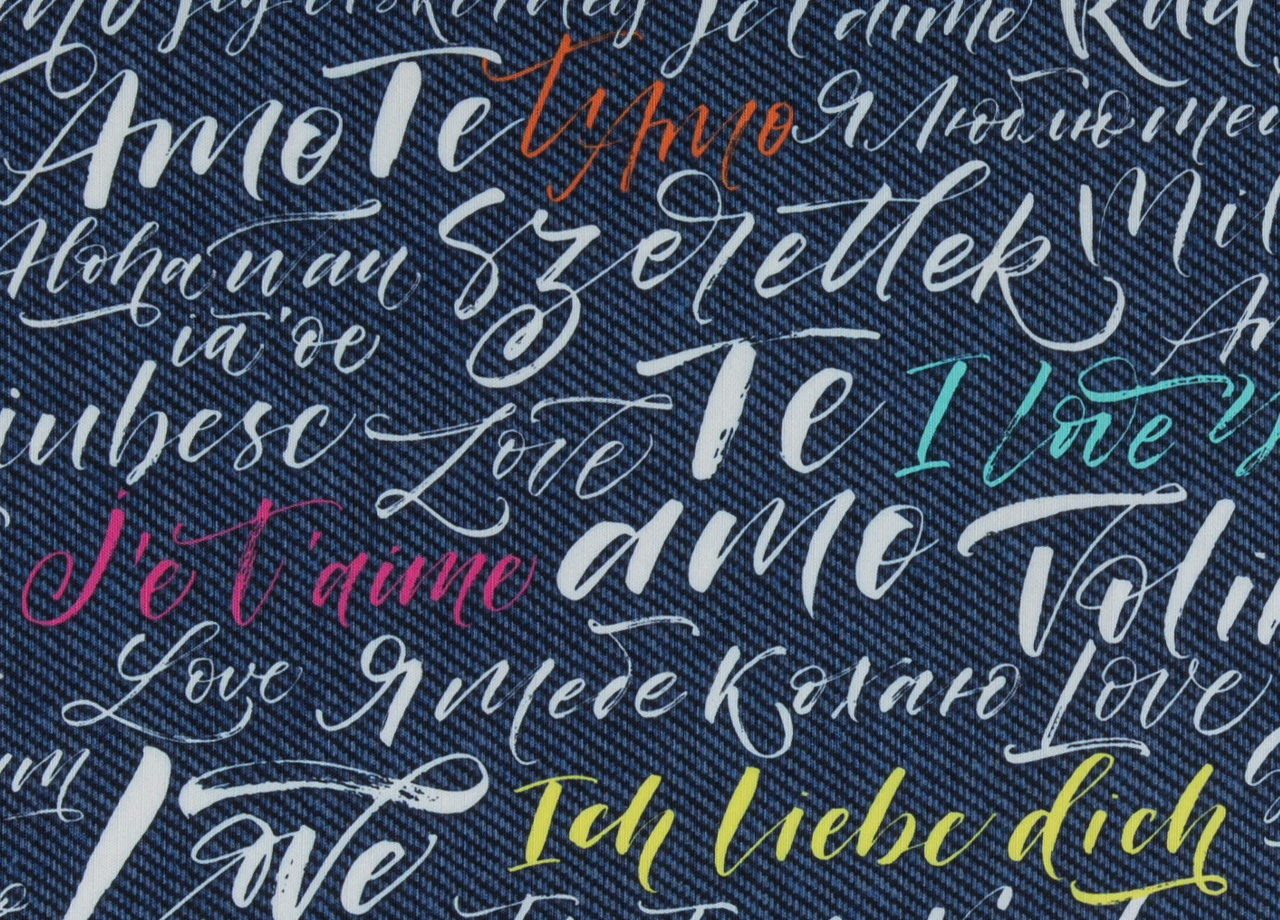 Je t'aime
Amo Te ti Amo Я люблю тебя
Aloha wau Szeretlek Mil
iā 'oe
iubesc Love Te I love y
Je t'aime amo Volim
Love Я тебе кохаю Love
Love Ich liebe dich